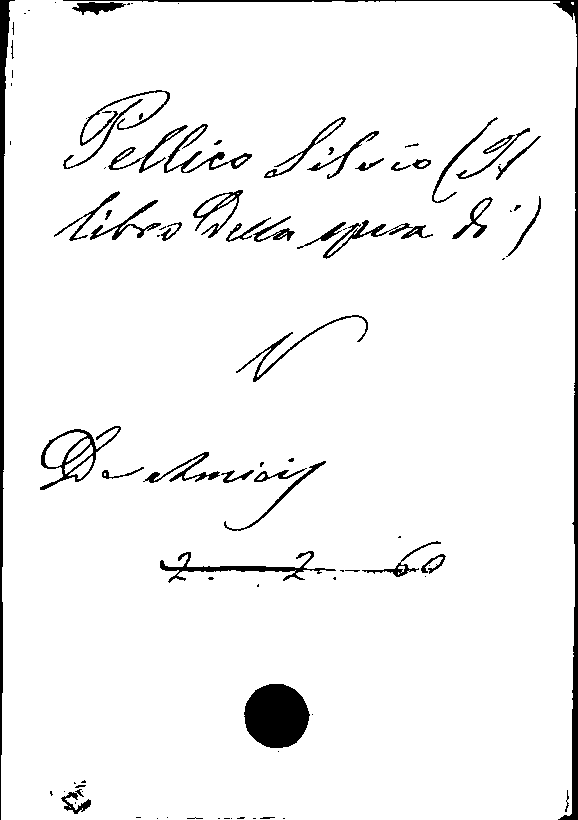 Pellico Silvio (Il
libro della spesa di)
V
De Amicis
2. 2. 60